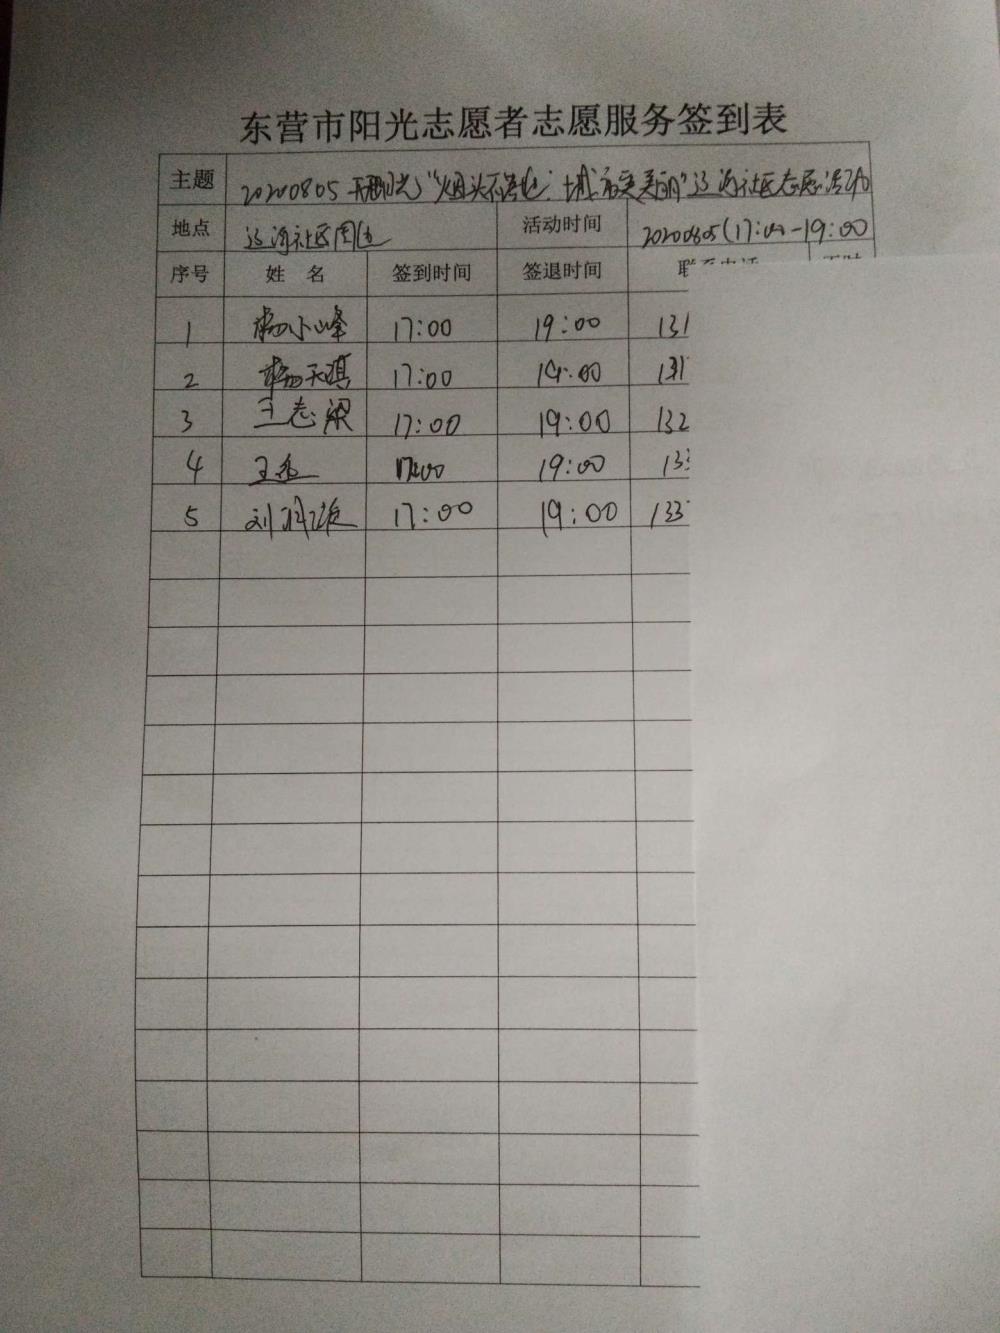 东营市阳光志愿者志愿服务签到表
主题 20200805 阳光"烟头不落地,城市更美丽"辽河社区志愿活动
地点 辽河社区周边 活动时间 20200805(17:00-19:00
序号 姓 名 签到时间 签退时间 联系电话
1 杨小峰 17:00 19:00 131
2 杨天琪 17:00 19:00 131
3 王志梁 17:00 19:00 132
4 王 17:00 19:00 133
5 刘 17:00 19:00 133